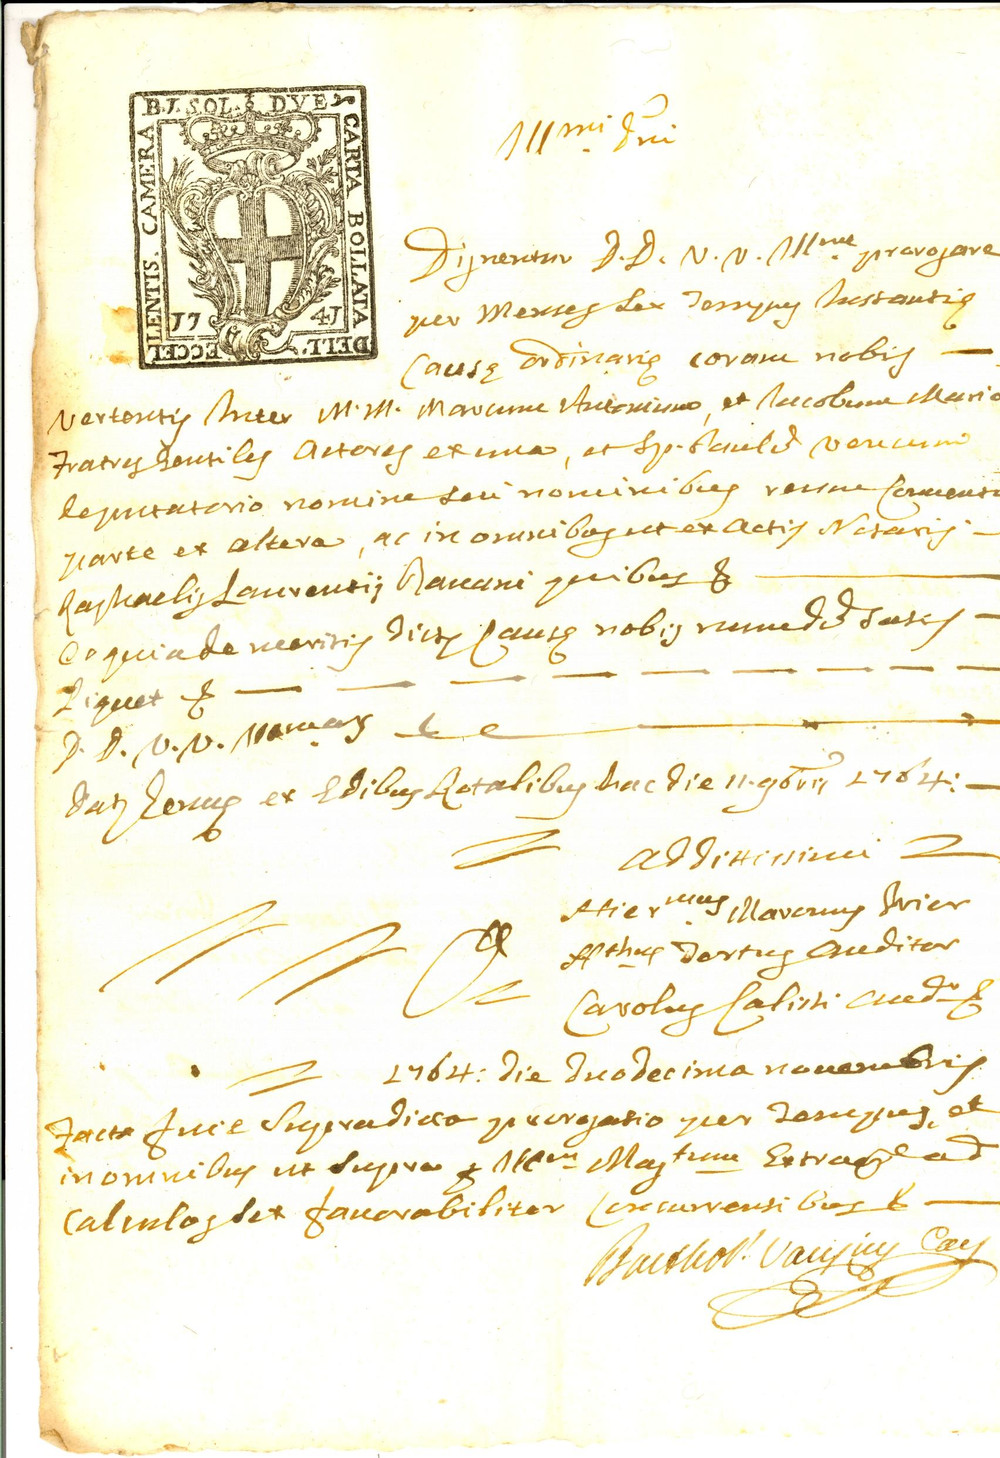 B. 1. SOL. DVE
CARTA BOLLATA
DELL' ECCEL
LENTIS. CAMERA
17 41
Ill.mi D.ni
Dignentur D. D. V. V. Ill.me prorogare
per Menses sex tempus Instantię
Causę ordinarię coram nobis
vertentis Inter M. M. Marcum Antonium, et Iacobum Maria
Fratres Gentiles Actores ex una, et Sp. Paulū
deputatorio nomine seu nominibus
parte ex altera, ac in omnibus ut ex Actis Notarij
Raphaelis Laurentij Ravani quibus &
Et quia de meritis dictę Causę nobis satis
Liquet &
D. D. V. V. Ill
Dat Genuę ex Edibus Rotalibus hac die 11. 9bris 1764:
Addictissimi
Hier.mus Marcus Prior
Tortus Auditor
Carolus Calissi Aud.r &
1764: die duodecima novembris
Facta fuit Supradicta prorogatio per Tempus, et
in omnibus ut supra & Ill.m Mag.tum Extrag ad
Calculos sex favorabiliter Concurrentibus &
Barthol.